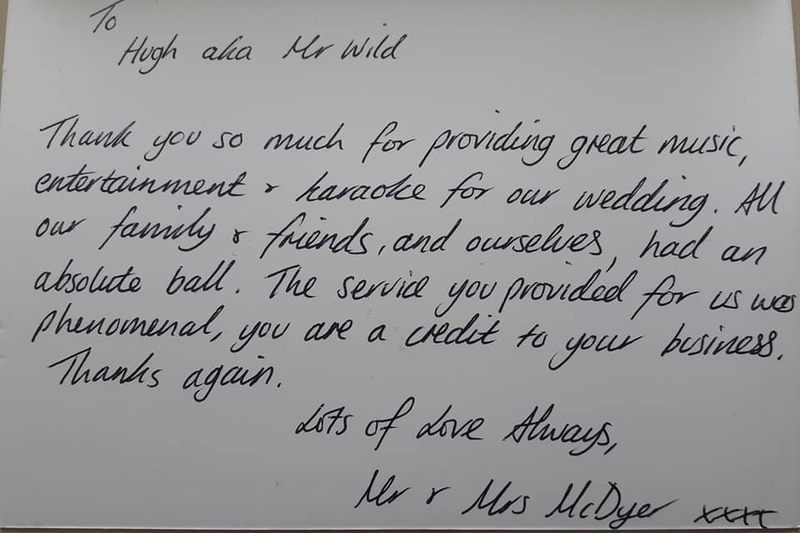 To
Hugh aka Mr Wild
Thank you so much for providing great music,
entertainment & karaoke for our wedding. All
our family & friends, and ourselves, had an
absolute ball. The service you provided for us was
phenomenal, you are a credit to your business.
Thanks again.
Lots of Love Always,
Mr & Mrs McDyer xxxx